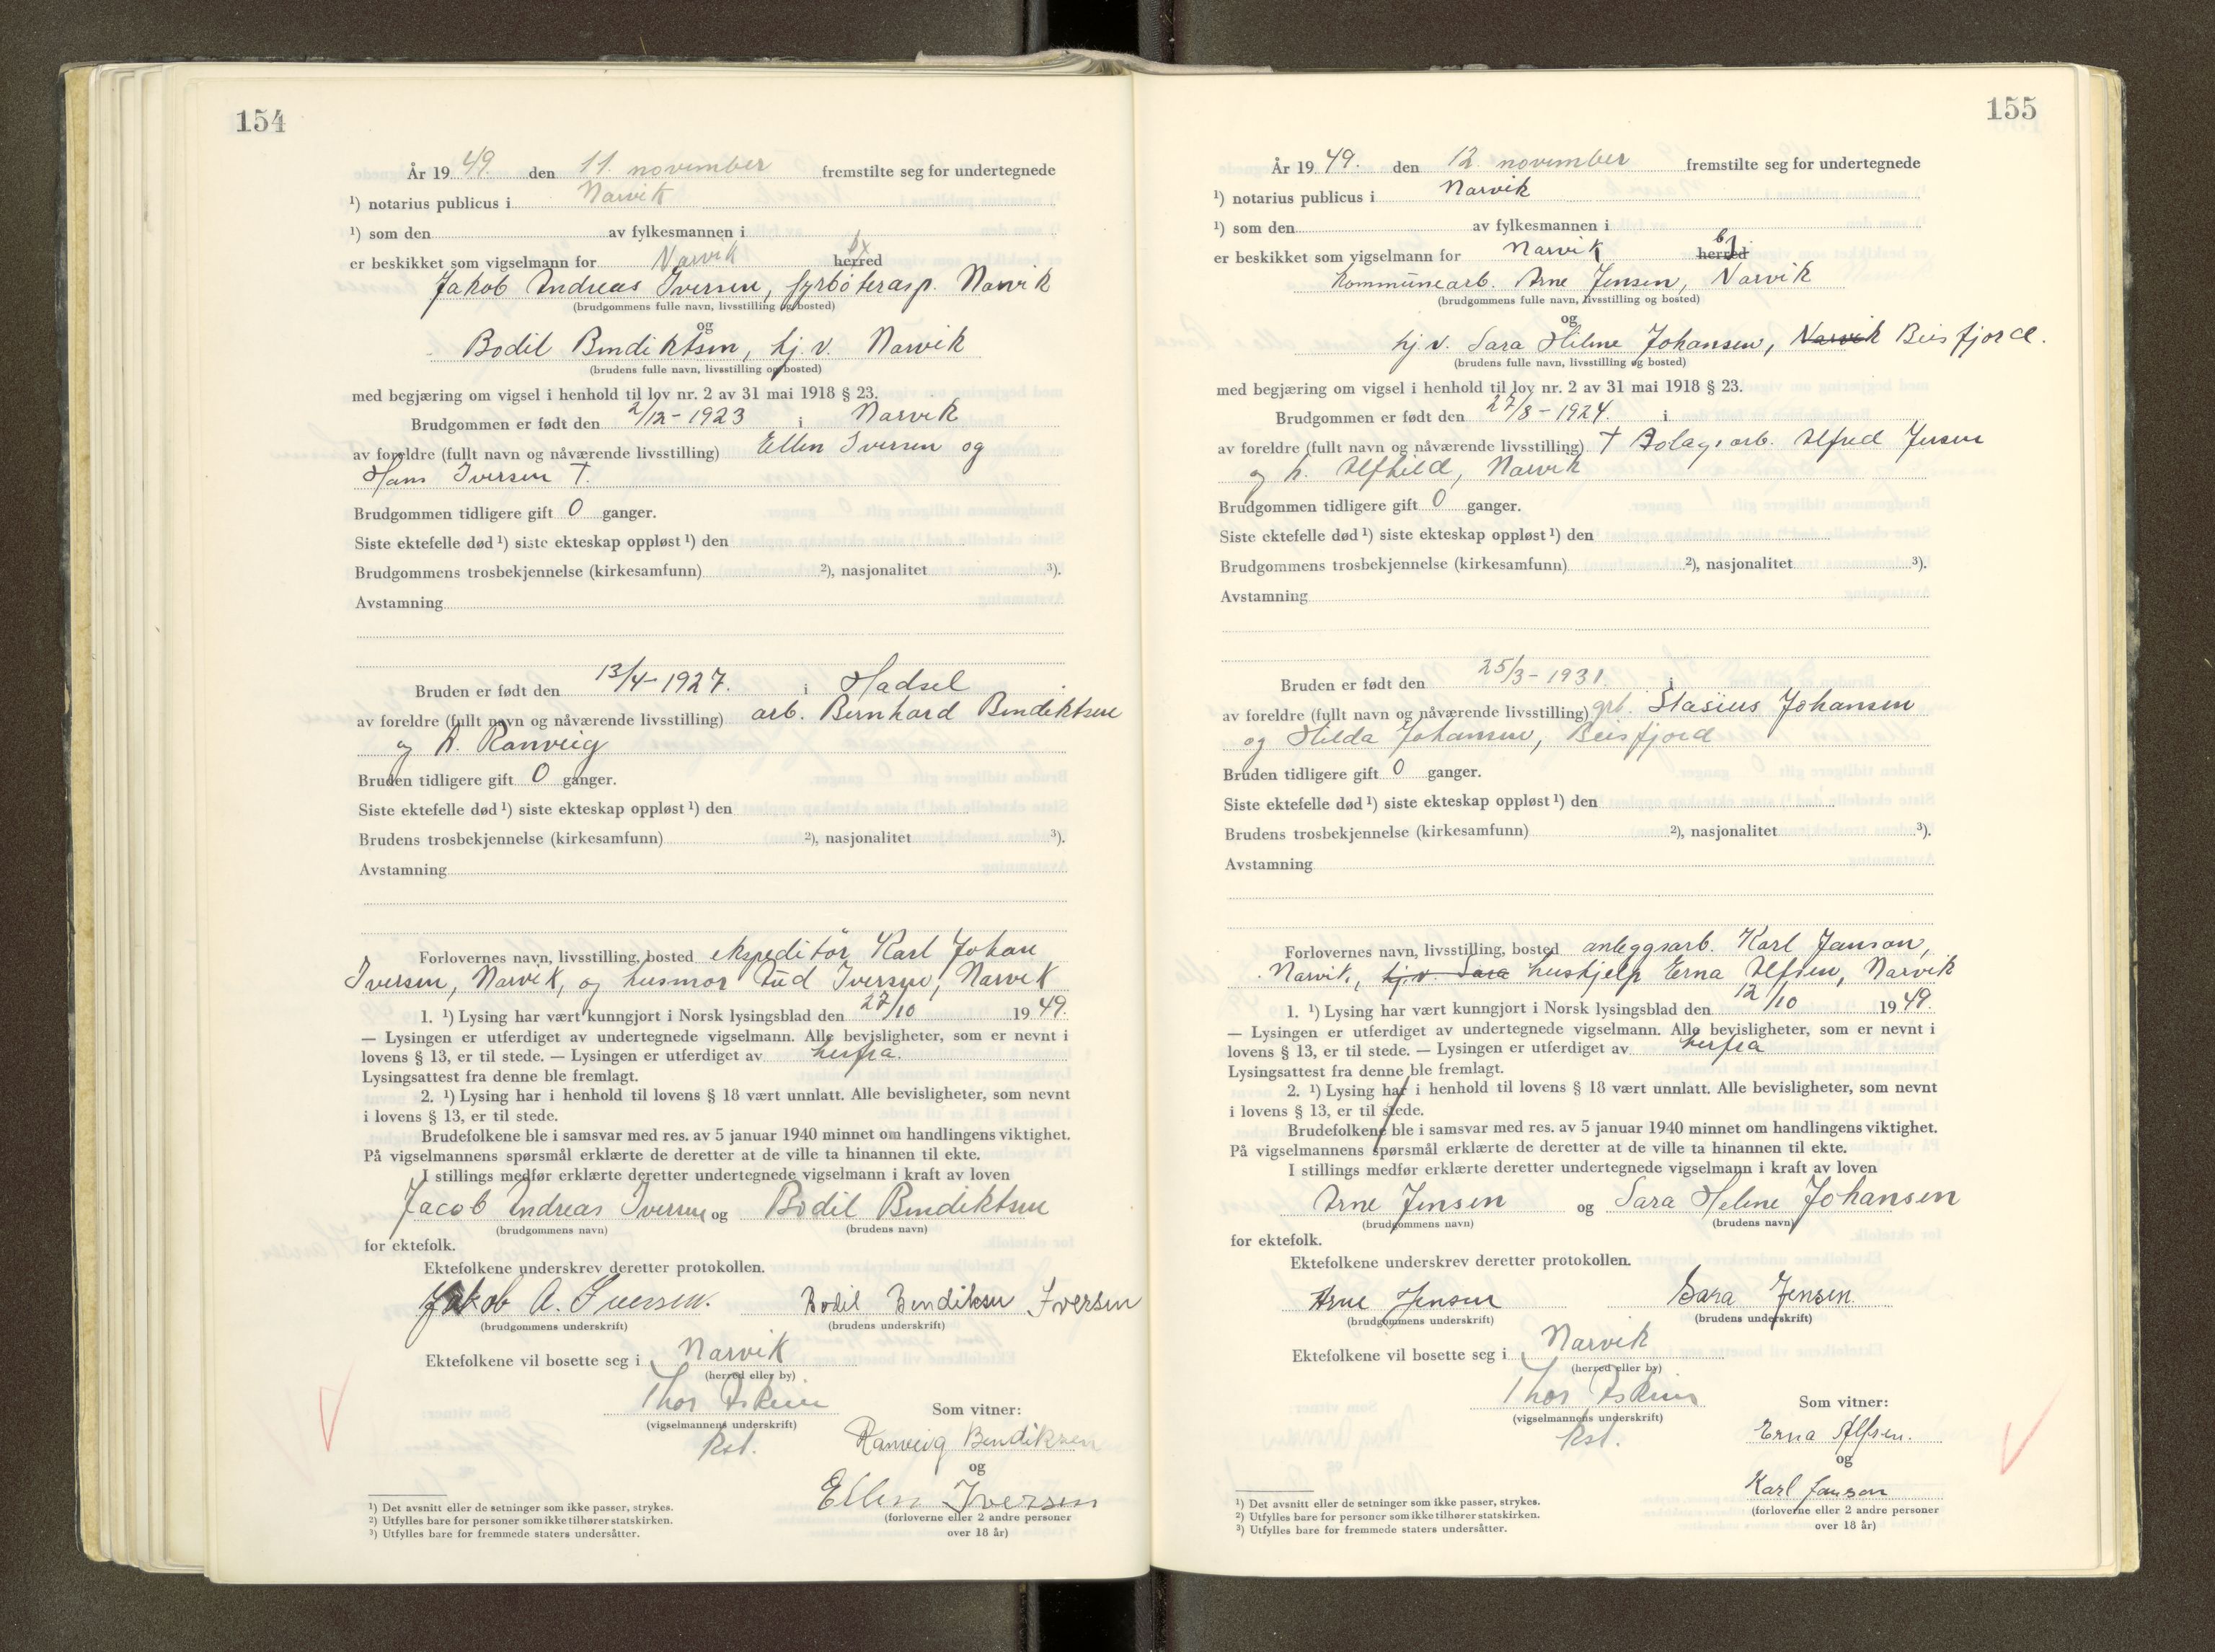 154
År 19 49. den 11. november fremstilte seg for undertegnede
¹) notarius publicus i Narvik
¹) som den av fylkesmannen i
er beskikket som vigselmann for Narvik herred by
Jakob Andreas Iversen, fyrbøterasp. Narvik
(brudgommens fulle navn, livsstilling og bosted)
og
Bodil Bendiktsen, hj. v. Narvik
(brudens fulle navn, livsstilling og bosted)
med begjæring om vigsel i henhold til lov nr. 2 av 31 mai 1918 § 23.
Brudgommen er født den 2/12-1923 i Narvik
av foreldre (fullt navn og nåværende livsstilling) Ellen Iversen og
Hans Iversen †.
Brudgommen tidligere gift 0 ganger.
Siste ektefelle død ¹) siste ekteskap oppløst ¹) den
Brudgommens trosbekjennelse (kirkesamfunn) ²), nasjonalitet ³).
Avstamning
Bruden er født den 13/4-1927. i Hadsel
av foreldre (fullt navn og nåværende livsstilling) arb. Bernhard Bendiktsen
og h. Ranveig
Bruden tidligere gift 0 ganger.
Siste ektefelle død ¹) siste ekteskap oppløst ¹) den
Brudens trosbekjennelse (kirkesamfunn) ²), nasjonalitet ³).
Avstamning
Forlovernes navn, livsstilling, bosted ekspeditör Karl Johan
Iversen, Narvik, og husmor Iversen, Narvik
1. ¹) Lysing har vært kunngjort i Norsk lysingsblad den 27/10 19 49.
— Lysingen er utferdiget av undertegnede vigselmann. Alle bevisligheter, som er nevnt i
lovens § 13, er til stede. — Lysingen er utferdiget av herfra.
Lysingsattest fra denne ble fremlagt.
2. ¹) Lysing har i henhold til lovens § 18 vært unnlatt. Alle bevisligheter, som nevnt
i lovens § 13, er til stede.
Brudefolkene ble i samsvar med res. av 5 januar 1940 minnet om handlingens viktighet.
På vigselmannens spørsmål erklærte de deretter at de ville ta hinannen til ekte.
I stillings medfør erklærte deretter undertegnede vigselmann i kraft av loven
Jacob Andreas Iversen og Bodil Bendiktsen
(brudgommens navn) (brudens navn)
for ektefolk.
Ektefolkene underskrev deretter protokollen.
Jakob A. Iversen. Bodil Bendiksen Iversen
(brudgommens underskrift) (brudens underskrift)
Ektefolkene vil bosette seg i Narvik
(herred eller by)
Thor
(vigselmannens underskrift)
Kst.
Som vitner:
Ranveig Bendiksen
og
Ellen Iversen
(forloverne eller 2 andre personer
over 18 år)
¹) Det avsnitt eller de setninger som ikke passer, strykes.
²) Utfylles bare for personer som ikke tilhører statskirken.
³) Utfylles bare for fremmede staters undersåtter.
155
År 19 49. den 12. november fremstilte seg for undertegnede
¹) notarius publicus i Narvik
¹) som den av fylkesmannen i
er beskikket som vigselmann for Narvik herred by
Kommunearb. Arne Jensen, Narvik
(brudgommens fulle navn, livsstilling og bosted)
og
hj v. Sara Helene Johansen, Narvik Beisfjord.
(brudens fulle navn, livsstilling og bosted)
med begjæring om vigsel i henhold til lov nr. 2 av 31 mai 1918 § 23.
Brudgommen er født den 27/8-1924. i
av foreldre (fullt navn og nåværende livsstilling) † Bolagsarb. Alfred Jensen
og h. Alfhild, Narvik
Brudgommen tidligere gift 0 ganger.
Siste ektefelle død ¹) siste ekteskap oppløst ¹) den
Brudgommens trosbekjennelse (kirkesamfunn) ²), nasjonalitet ³).
Avstamning
Bruden er født den 25/3-1931. i
av foreldre (fullt navn og nåværende livsstilling) grb. Stasius Johansen
og Hilda Johansen, Beisfjord
Bruden tidligere gift 0 ganger.
Siste ektefelle død ¹) siste ekteskap oppløst ¹) den
Brudens trosbekjennelse (kirkesamfunn) ²), nasjonalitet ³).
Avstamning
Forlovernes navn, livsstilling, bosted anleggsarb. Karl Janson,
Narvik, hj.v. Sara hushjelp Erna Alfsen, Narvik
1. ¹) Lysing har vært kunngjort i Norsk lysingsblad den 12/10 19 49.
— Lysingen er utferdiget av undertegnede vigselmann. Alle bevisligheter, som er nevnt i
lovens § 13, er til stede. — Lysingen er utferdiget av herfra
Lysingsattest fra denne ble fremlagt.
2. ¹) Lysing har i henhold til lovens § 18 vært unnlatt. Alle bevisligheter, som nevnt
i lovens § 13, er til stede.
Brudefolkene ble i samsvar med res. av 5 januar 1940 minnet om handlingens viktighet.
På vigselmannens spørsmål erklærte de deretter at de ville ta hinannen til ekte.
I stillings medfør erklærte deretter undertegnede vigselmann i kraft av loven
Arne Jensen og Sara Helene Johansen
(brudgommens navn) (brudens navn)
for ektefolk.
Ektefolkene underskrev deretter protokollen.
Arne Jensen Sara Jensen.
(brudgommens underskrift) (brudens underskrift)
Ektefolkene vil bosette seg i Narvik
(herred eller by)
Thor
(vigselmannens underskrift)
Kst.
Som vitner:
Erna Alfsen.
og
Karl Janson
(forloverne eller 2 andre personer
over 18 år)
¹) Det avsnitt eller de setninger som ikke passer, strykes.
²) Utfylles bare for personer som ikke tilhører statskirken.
³) Utfylles bare for fremmede staters undersåtter.